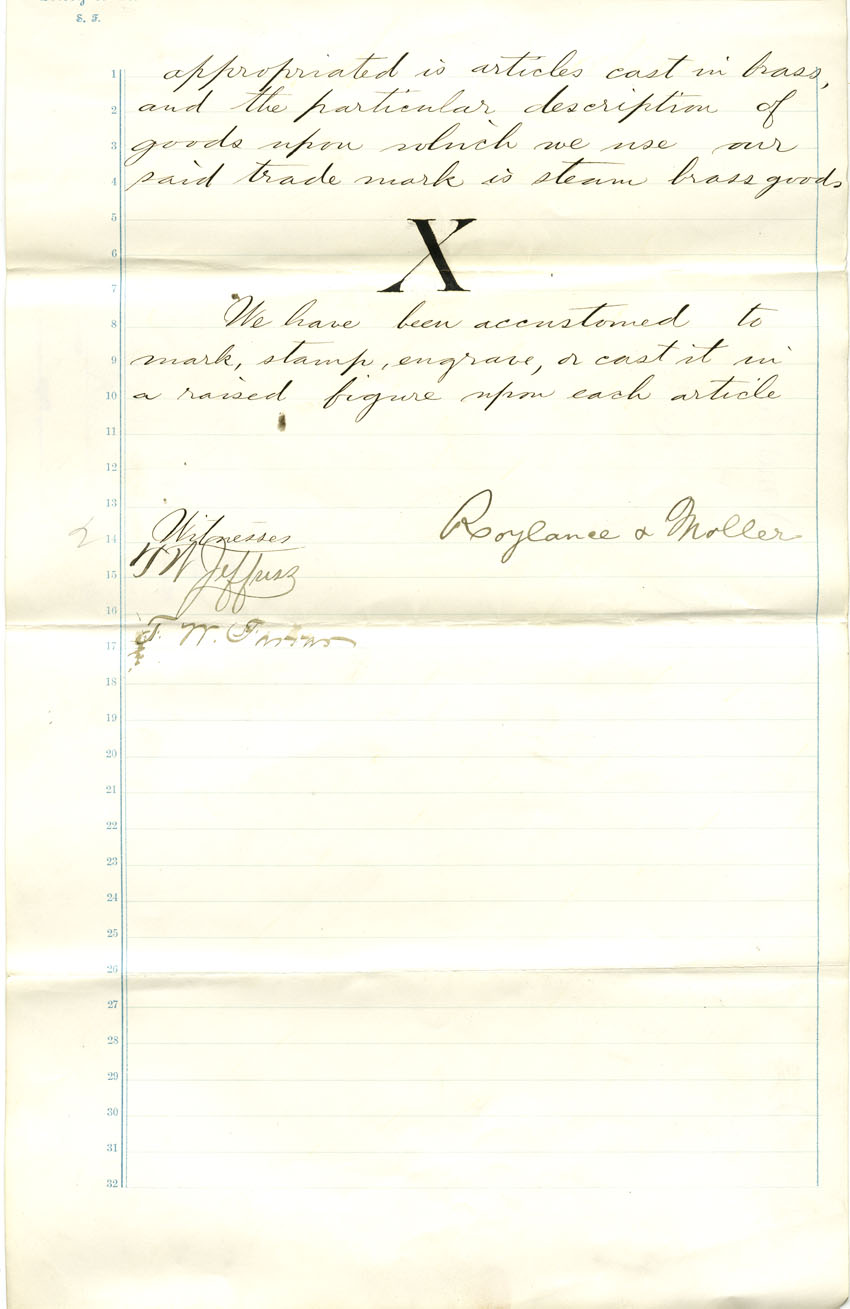 S. F.
1 appropriated is articles cast in brass,
2 and the particular description of
3 goods upon which we use our
4 said trade mark is steam brass goods
5
6 X
7
8 We have been accustomed to
9 mark, stamp, engrave, or cast it in
10 a raised figure upon each article
11
12
13
14 Witnesses Roylance & Moller
15
16
17 F. W.
18
19
20
21
22
23
24
25
26
27
28
29
30
31
32